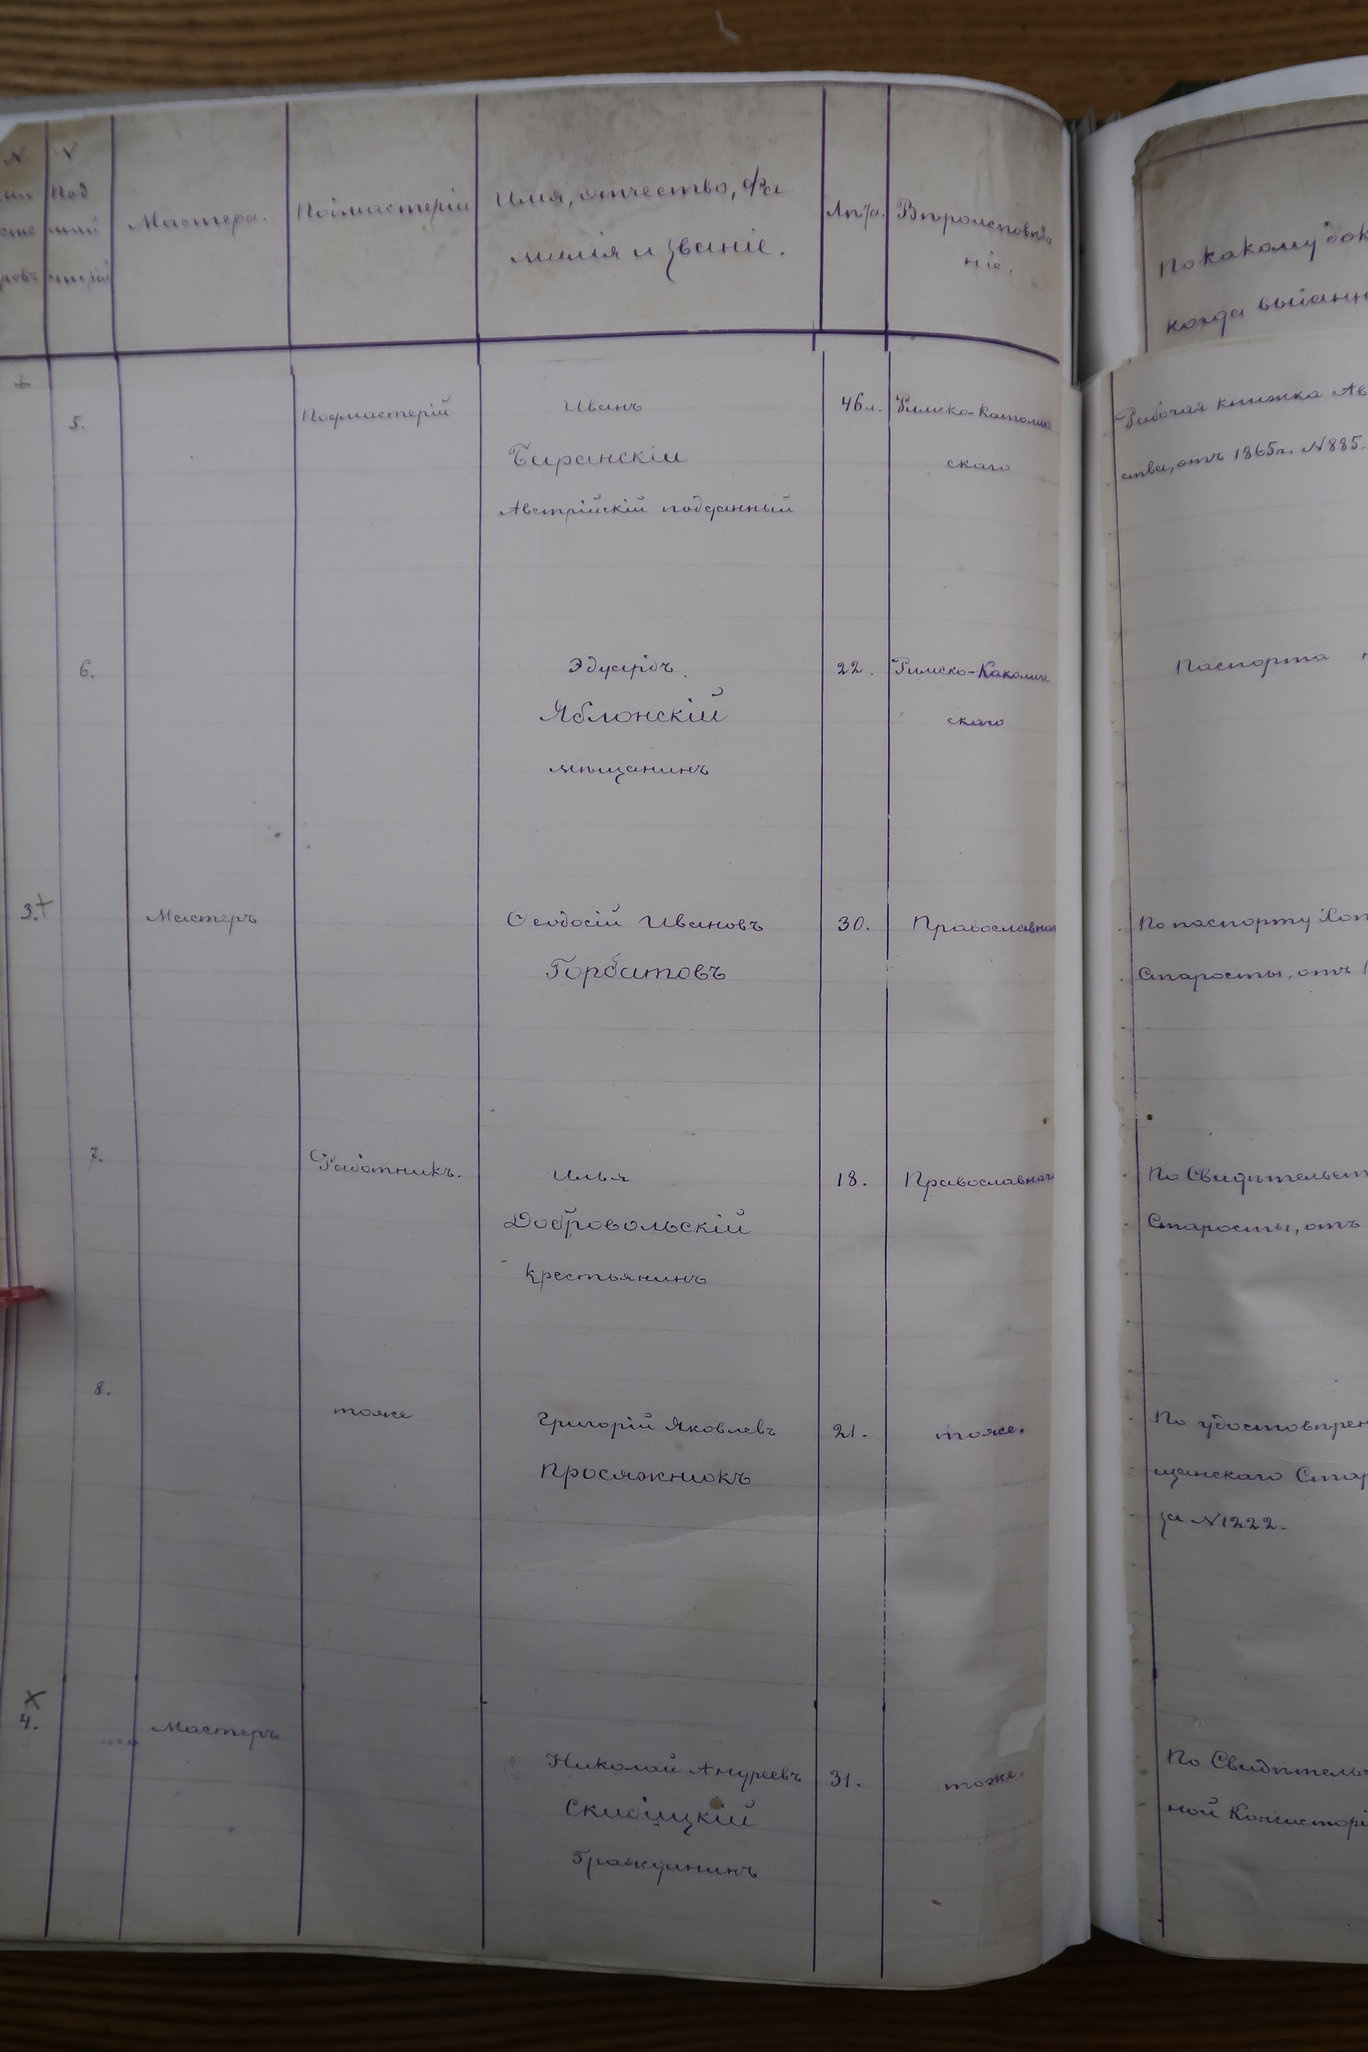 N N
Под
май
стрій
Мастера.
Подмастерій
Имя, отчество, фа
милія и званіе.
Лѣта.
Вѣроисповѣда
ніе.
По какому док
когда выданн
+
5.
Подмастерій
Иванъ
Баранскій
Австрійскій подданный
46 л.
Римско-Католич
скаго
Рабочая книжка Ав
ства, отъ 1865 г. N 885.
6.
Эдуардъ.
Яблонскій
мѣщанинъ
22.
Римско-Каколич
скаго
Паспорта
3. +
Мастеръ
Ѳеодосій Ивановъ
Горбатовъ
30.
Православнаг
По паспорту Хот
Старосты, отъ 1
7.
Работникъ.
Илья
Добровольскій
крестьянинъ
18.
Православнаго
По Свидѣтельст
Старосты, отъ
8.
тоже
Григорій Яковлевъ
Просяжнюкъ
21.
тоже.
По удостовѣрен
щанскаго Стар
за N 1222.
x
4.
Мастеръ
Николай Андреевъ
Скибицкій
Гражданинъ
31.
тоже.
По Свидѣтельс
ной Консисторі